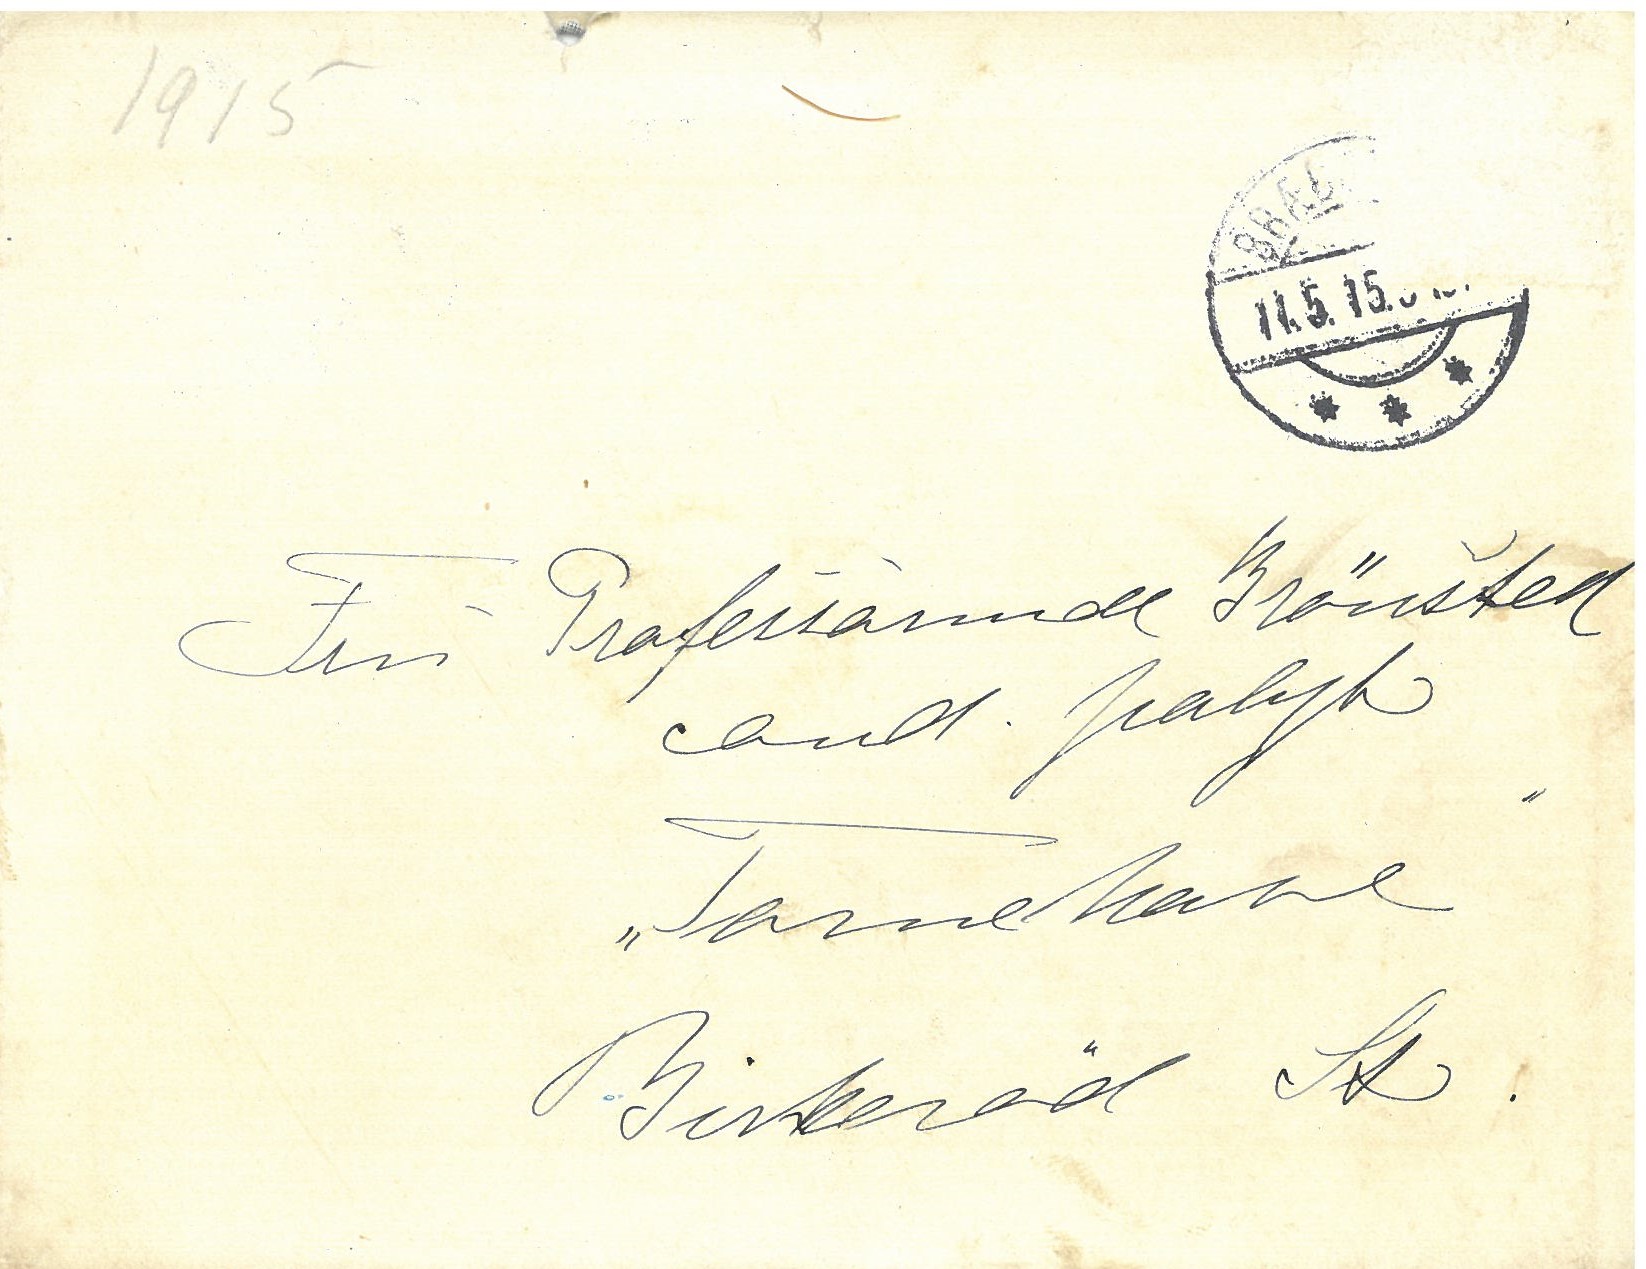 1915
BRÆD
11.5.15.
Fru Professorinde Brönsted
cand. polyt
„Tornehave"
Birkeröd St.